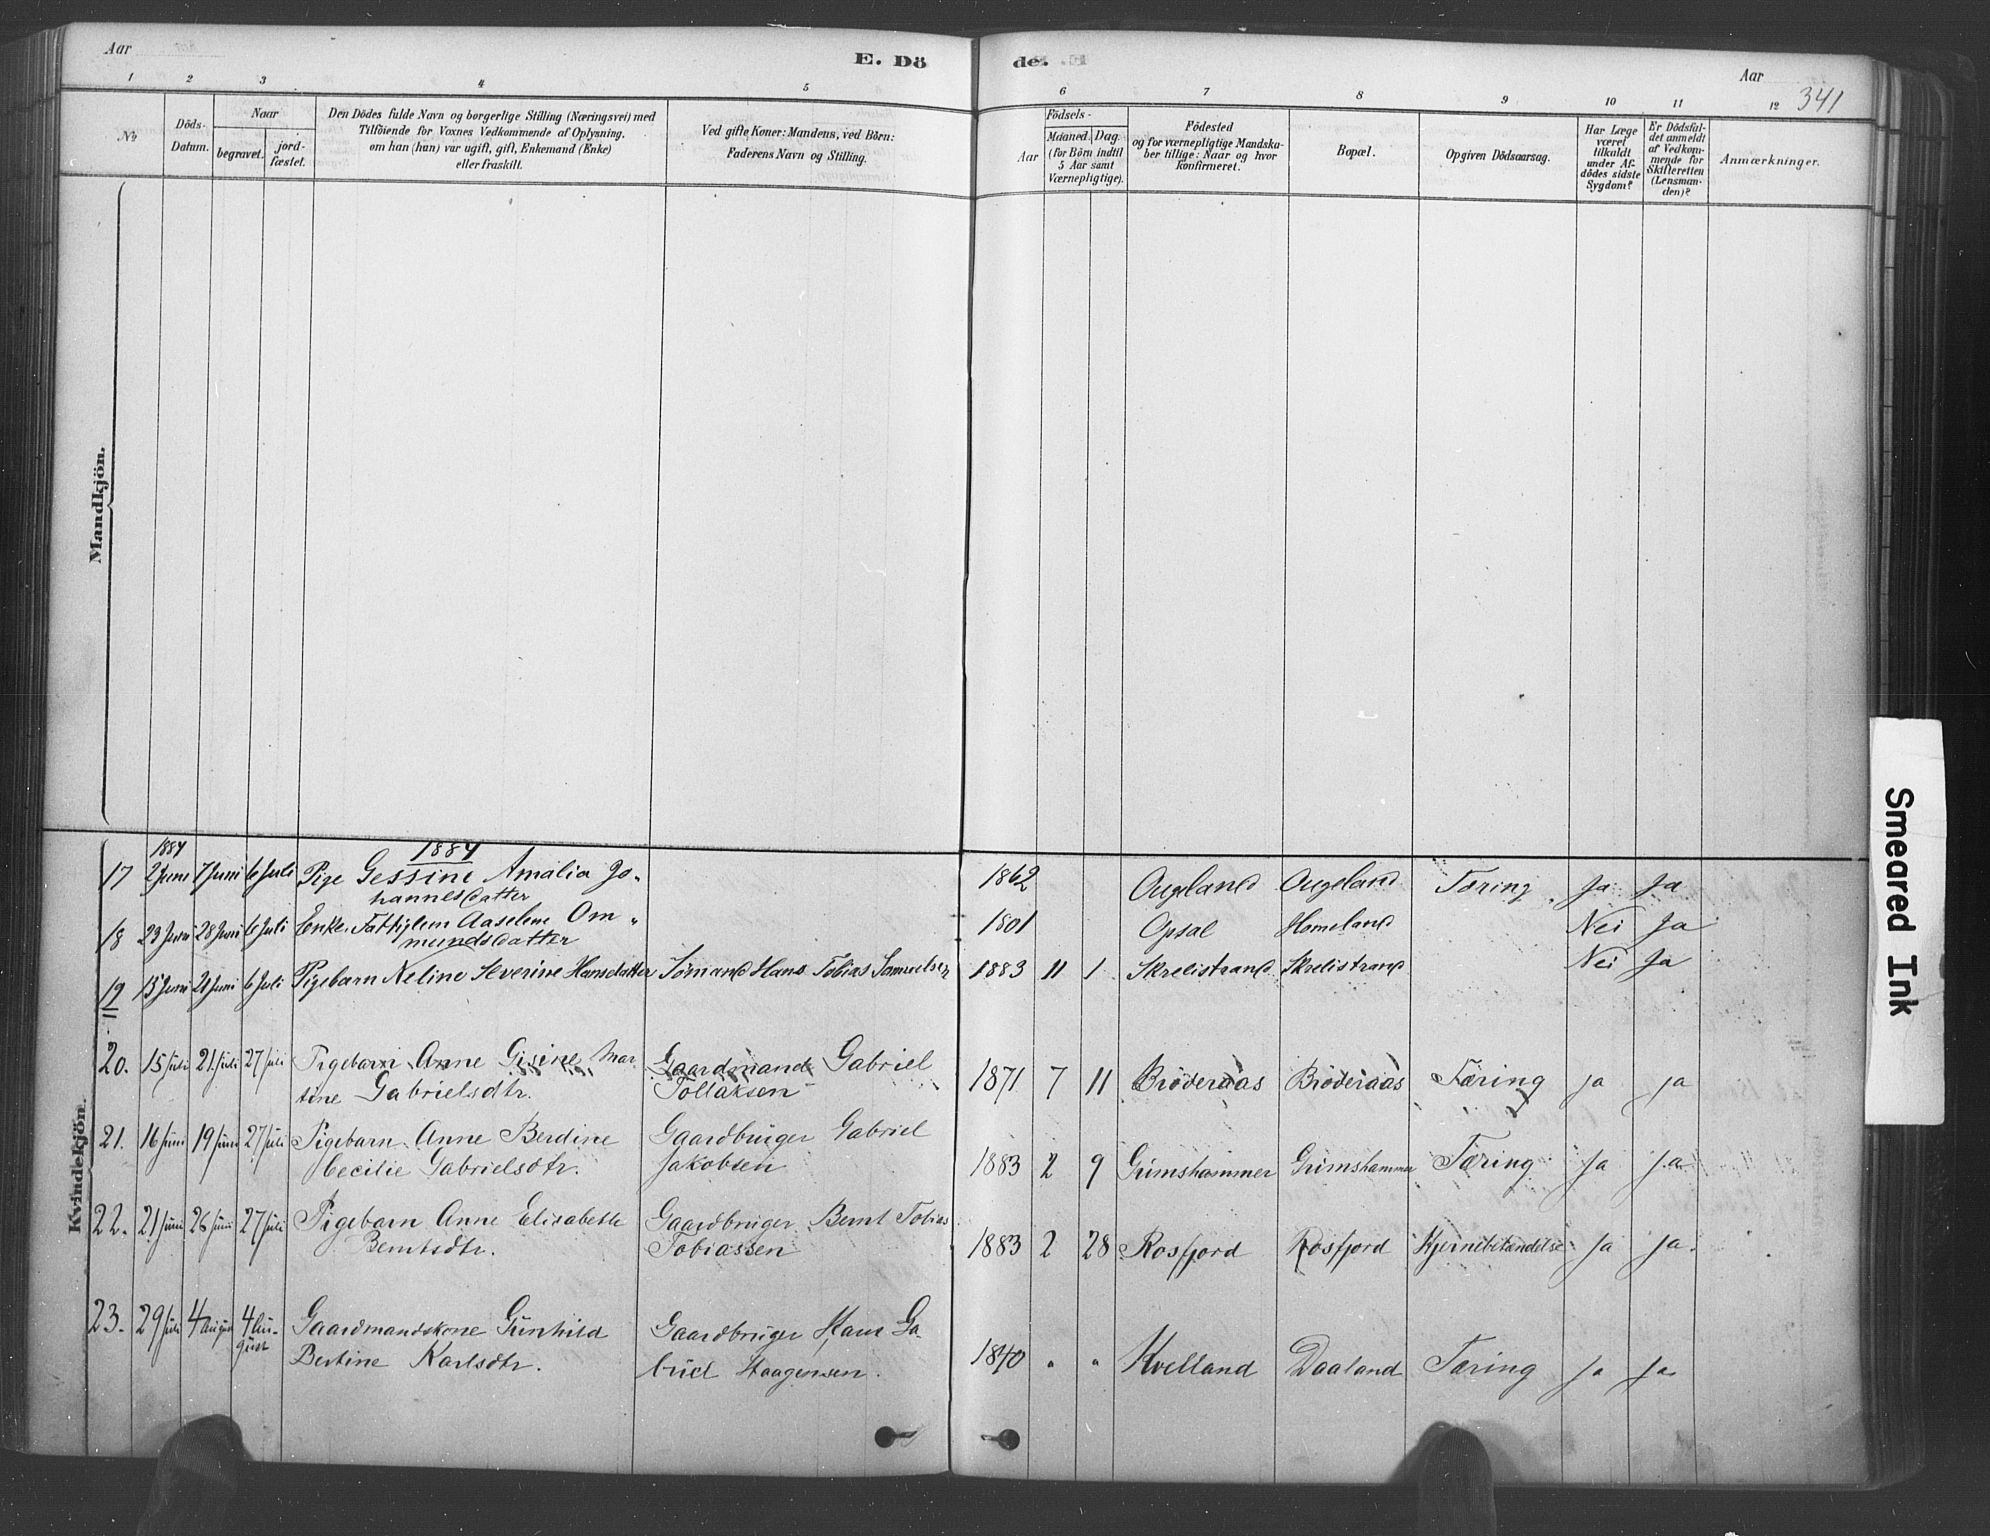 Aar
E. Dö
de.
Aar
341
1 2 3 4 5 6 7 8 9 10 11 12
No
Döds-
Datum.
Naar
begravet.
jord-
fæstet.
Den Dödes fulde Navn og borgerlige Stilling (Næringsvei) med
Tilföiende for Voxnes Vedkommende af Oplysning,
om han (hun) var ugift, gift, Enkemand (Enke)
eller fraskilt.
Ved gifte Koner: Mandens, ved Börn:
Faderens Navn og Stilling.
Födsels-
Aar
Maaned. Dag.
(for Börn indtil
5 Aar samt
Værnepligtige).
Födested
og for værnepligtige Mandska-
ber tillige: Naar og hvor
konfirmeret.
Bopæl.
Opgiven Dödsaarsag.
Har Læge
været
tilkaldt
under Af-
dödes sidste
Sygdom?
Er Dödsfal-
det anmeldt
af Vedkom-
mende for
Skifteretten
(Lensman-
den)?
Anmærkninger.
Mandkjön.
Kvindekjön.
1884 1884
17 2 Juni 7 Juni 6 Juli Pige Gessine Amalia Jo- 1862 Augeland Augeland Tæring Ja Ja
hannesdatter
18 23 Juni 28 Juni 6 Juli Enke Aaselene Om- 1801 Opsal Homeland Nei Ja
mundsdatter
19 15 Juni 21 Juni 6 Juli Pigebarn Neline Severine Hansdatter Sömand Hans Tobias Samuelsen 1883 11 1 Skrelistrand Skrelistrand Nei Ja
20. 15 Juli 21. Juli 27 Juli Pigebarn Anne Gisine Mar Gaardmand Gabriel 1871 7 11 Bröderaas Bröderaas Tæring ja ja
tine Gabrielsdtr. Tollaksen
21. 16 Juni 19 Juni 27 Juli Pigebarn Anne Berdine Gaardbruger Gabriel 1883 2 9 Grimshammer Grimshammer Tæring Ja Ja
Cecilie Gabrielsdtr. Jakobsen
22. 21 Juni 26 Juni 27 Juli Pigebarn Anne Elisabeth Gaardbruger Bernt Tobias 1883 2 28 Rosfjord Rosfjord Hjernebetændelse Ja Ja.
Berntsdtr. Tobiassen
23. 29 Juli 4 August 4 Au- Gaardmandskone Gunhild Gaardbruger Hans Ga 1840 " " Kvelland Daaland Tæring Ja Ja
gust Bertine Karlsdtr. briel Haagensen.
Smeared Ink